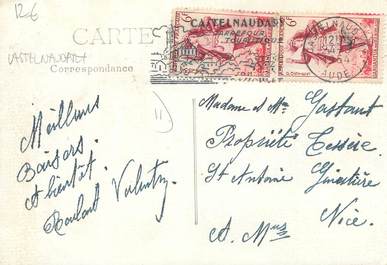 12€
CASTELNAUDARY
CARTE
Correspondance
CASTELNAUDARY
CARREFOUR
TOURISTIQUE
CASTELNAUDARY
AUDE
6F
6F
Meilleurs
Baisers
A bientôt
Roulant Valentry.
Madame et Mr Gastant
Propriété Tessère
St Antoine Ginestière
Nice.
A. Mmes